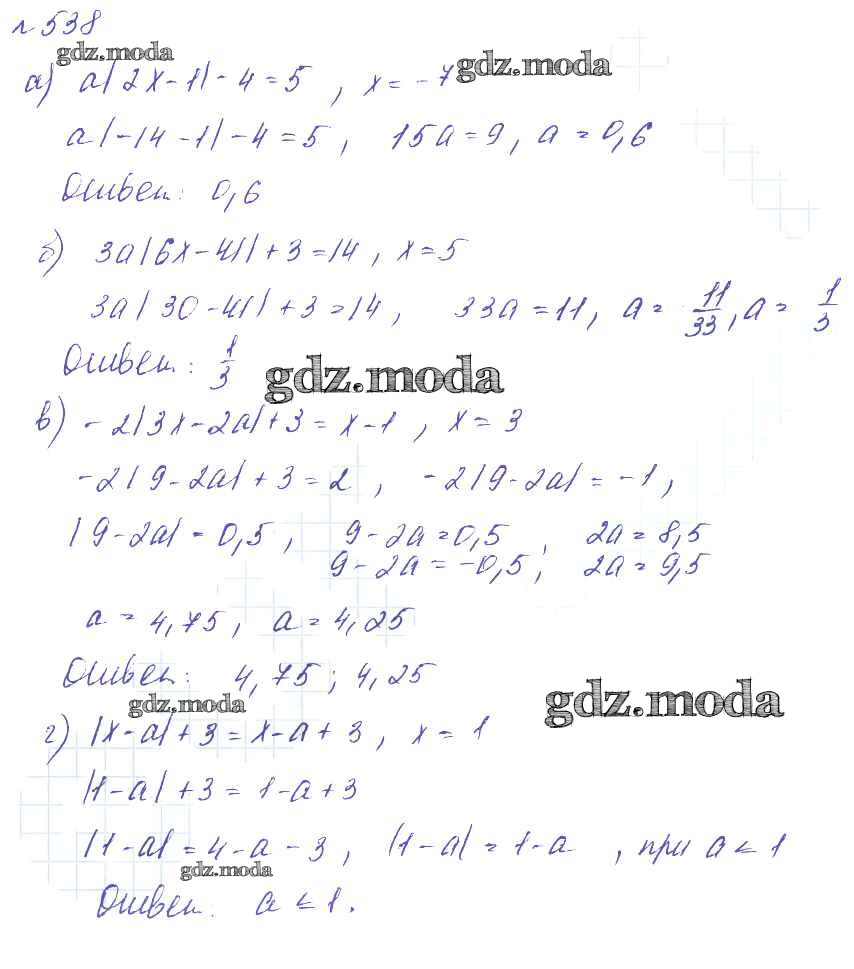 № 538
gdz.moda
gdz.moda
а) a|2x-1|-4=5, x=-7
a|-14-1|-4=5, 15a=9, a=0,6
Ответ: 0,6
б) 3a|6x-41|+3=14, x=5
3a|30-41|+3=14, 33a=11, a=11/33, a=1/3
Ответ: 1/3
gdz.moda
в) -2|3x-2a|+3=x-1, x=3
-2|9-2a|+3=2, -2|9-2a|=-1,
|9-2a|=0,5, 9-2a=0,5, 2a=8,5
9-2a=-0,5; 2a=9,5
a=4,75, a=4,25
Ответ: 4,75; 4,25
gdz.moda
gdz.moda
г) |x-a|+3=x-a+3, x=1
|1-a|+3=1-a+3
|1-a|=4-a-3, |1-a|=1-a, при a≤1
gdz.moda
Ответ: a≤1.